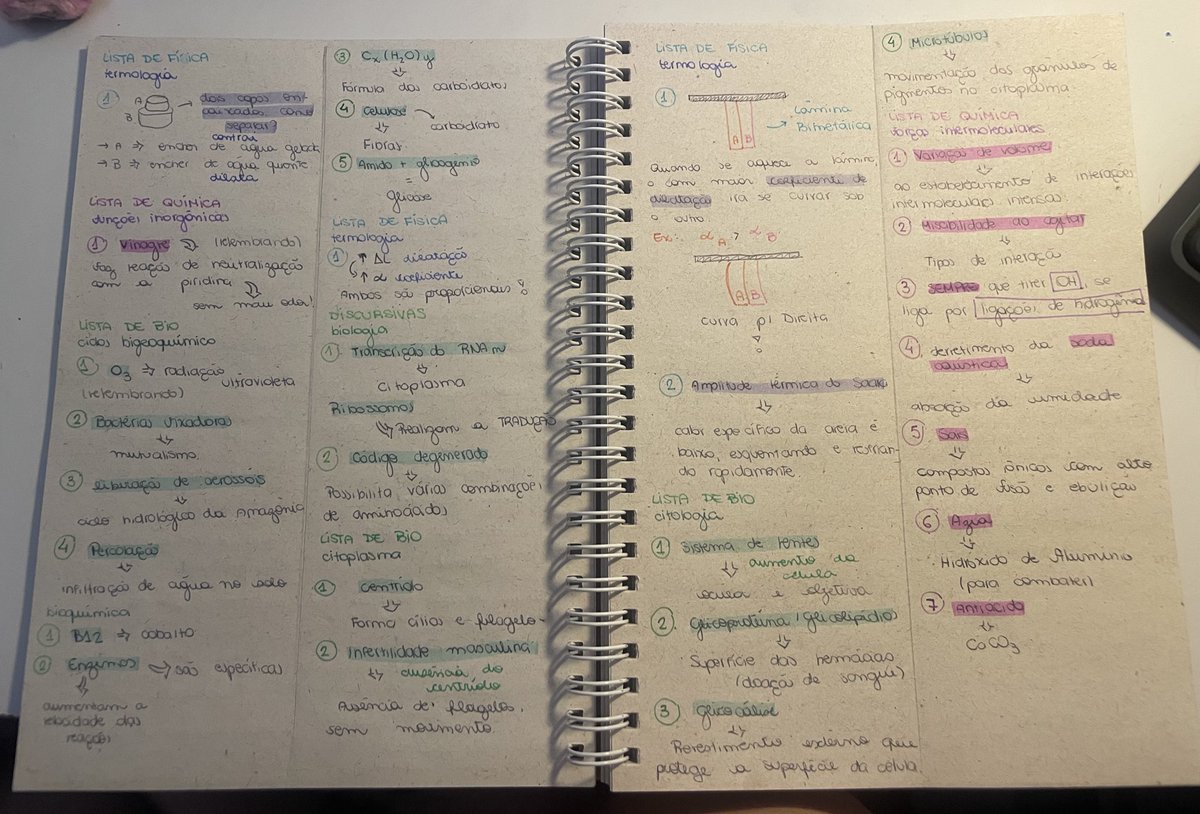 LISTA DE FÍSICA
termologia
1
A
B
→ dois copos en-
caixados, como
separar?
contrai
→ A ⇒ encher de água gelada
→ B ⇒ encher de água quente
dilata
LISTA DE QUÍMICA
funções inorgânicas
1 Vinagre (relembrando)
faz reação de neutralização
com a piridina
sem mau odor!
LISTA DE BIO
ciclos biogeoquímico
1 O3 ⇒ radiação
ultravioleta
(relembrando)
2 Bactérias fixadoras
mutualismo
3 liberação de aerossóis
ciclo hidrológico da Amazônia
4 Percolação
infiltração de água no solo
bioquímica
1 B12 ⇒ cobalto
2 Enzimas ⇒ são específicas
aumentam a
velocidade das
reações
3 Cx(H2O)y
Fórmula dos carboidratos
4 Celulose
carboidrato
Fibras
5 Amido + glicogênio
=
glicose
LISTA DE FÍSICA
termologia
1 ↑ ΔL dilatação
↑ α coeficiente
Ambos são proporcionais
DISCURSIVAS
biologia
1 Transcrição do RNAm
citoplasma
Ribossomos
Realizam a TRADUÇÃO
2 Código degenerado
Possibilita várias combinações
de aminoácidos
LISTA DE BIO
citoplasma
1 centríolo
Forma cílios e flagelo
2 Infertilidade masculina
ausência do
centríolo
Ausência de flagelos,
sem movimento
LISTA DE FÍSICA
termologia
1
A B
→ Lâmina
Bimetálica
Quando se aquece a lâmina,
o com maior coeficiente de
dilatação irá se curvar sob
o outro.
Ex: αA > αB
A B
curva p/ Direita
2 Amplitude térmica do Saara
calor específico da areia é
baixo, esquentando e resfrian-
do rapidamente
LISTA DE BIO
citologia
1 Sistema de lentes
aumento da
célula
ocular e objetiva
2 Glicoproteína/glicolipídio
Superfície das hemácias
(doação de sangue)
3 Glicocálise
Revestimento externo que
protege a superfície da célula.
4 Microtúbulos
movimentação dos grânulos de
pigmentos no citoplasma
LISTA DE QUÍMICA
forças intermoleculares
1 Variação de volume
ao estabelecimento de interações
intermoleculares intensas
2 Miscibilidade ao agitar
Tipos de interação
3 SEMPRE que tiver OH, se
liga por ligações de hidrogênio
4 derretimento da soda
cáustica
absorção da umidade
5 Sais
compostos iônicos com alto
ponto de fusão e ebulição
6
Hidróxido de Alumínio
(para combater)
7 Antiácido
CaCO3